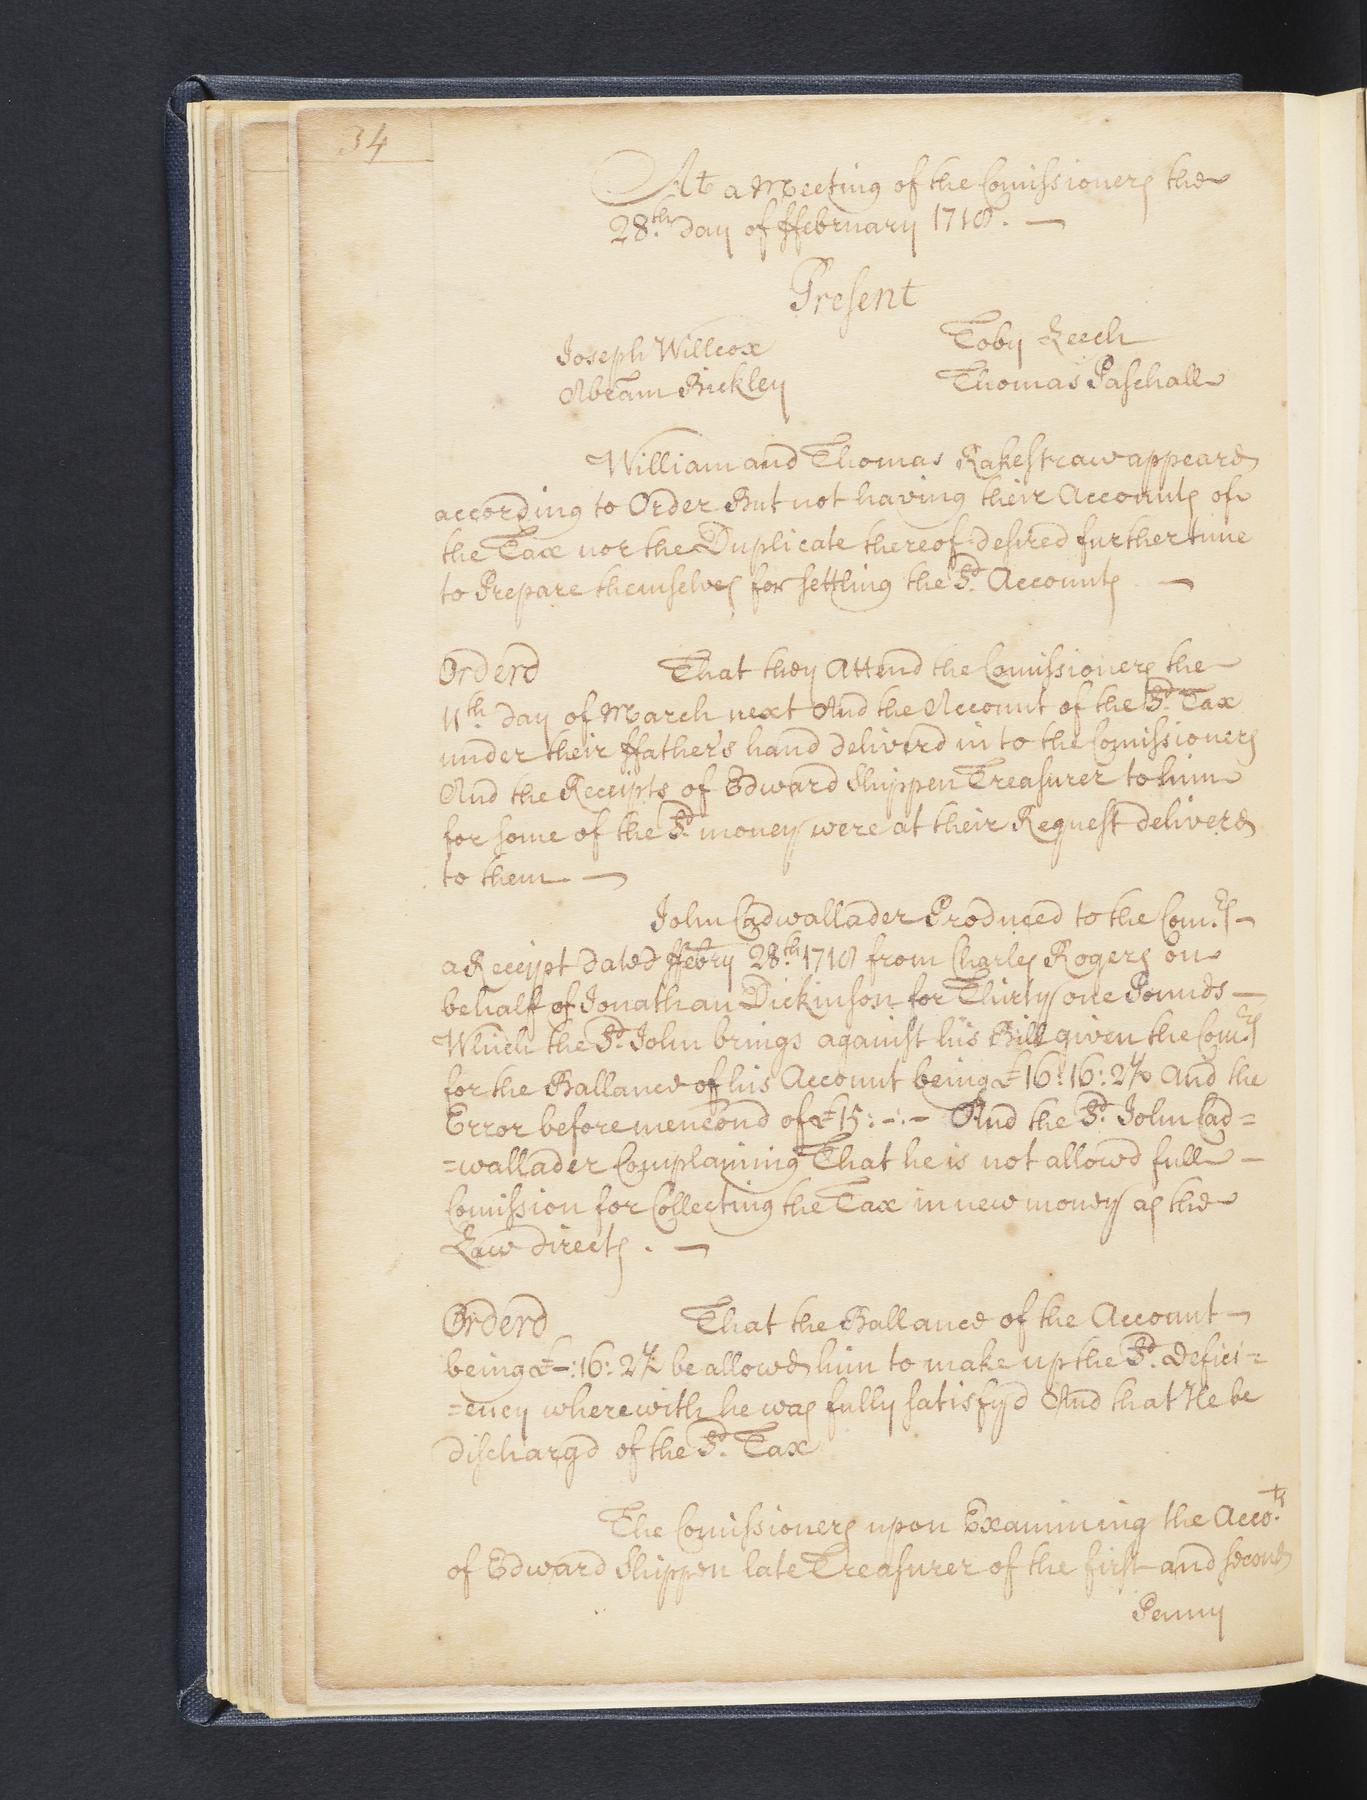 34
At a Meeting of the Comissioners the
28.th day of ffebruary 1718. —
Present
Joseph Willcox
Abram Bickley
Toby Leech
Thomas Paschall
William and Thomas Rakestraw appeard
according to Order But not having their Accounts of
the Tax nor the Duplicate thereof desired further time
to Prepare themselves for settling the Sd. Accounts —
Orderd That they Attend the Comissioners the
11th day of March next And the Account of the Sd. Tax
under their ffather's hand deliverd in to the Comissioners
And the Receipts of Edward Shippen Treasurer to him
for some of the Sd. money were at their Request deliverd
to them —
John Cadwallader Produced to the Com.rs —
a Receipt dated ffebry 28.th 1718 from Charles Rogers on
behalf of Jonathan Dickinson for Thirty one Pounds —
Which the Sd. John brings against his Bill given the Com.rs
for the Ballance of his Account being £16:16:2½ And the
Error before mencond of £15:-:- And the Sd. John Cad=
=wallader Complaining That he is not allowd full —
Comission for Collecting the Tax in new money as the
Law directs. —
Orderd That the Ballance of the Account —
being £-:16:2½ be allowd him to make up the Sd. Defici=
=ency wherewith he was fully satisfyd And that He be
dischargd of the Sd. Tax
The Comissioners upon Examining the Acco.ts
of Edward Shippen late Treasurer of the first and second
Penny